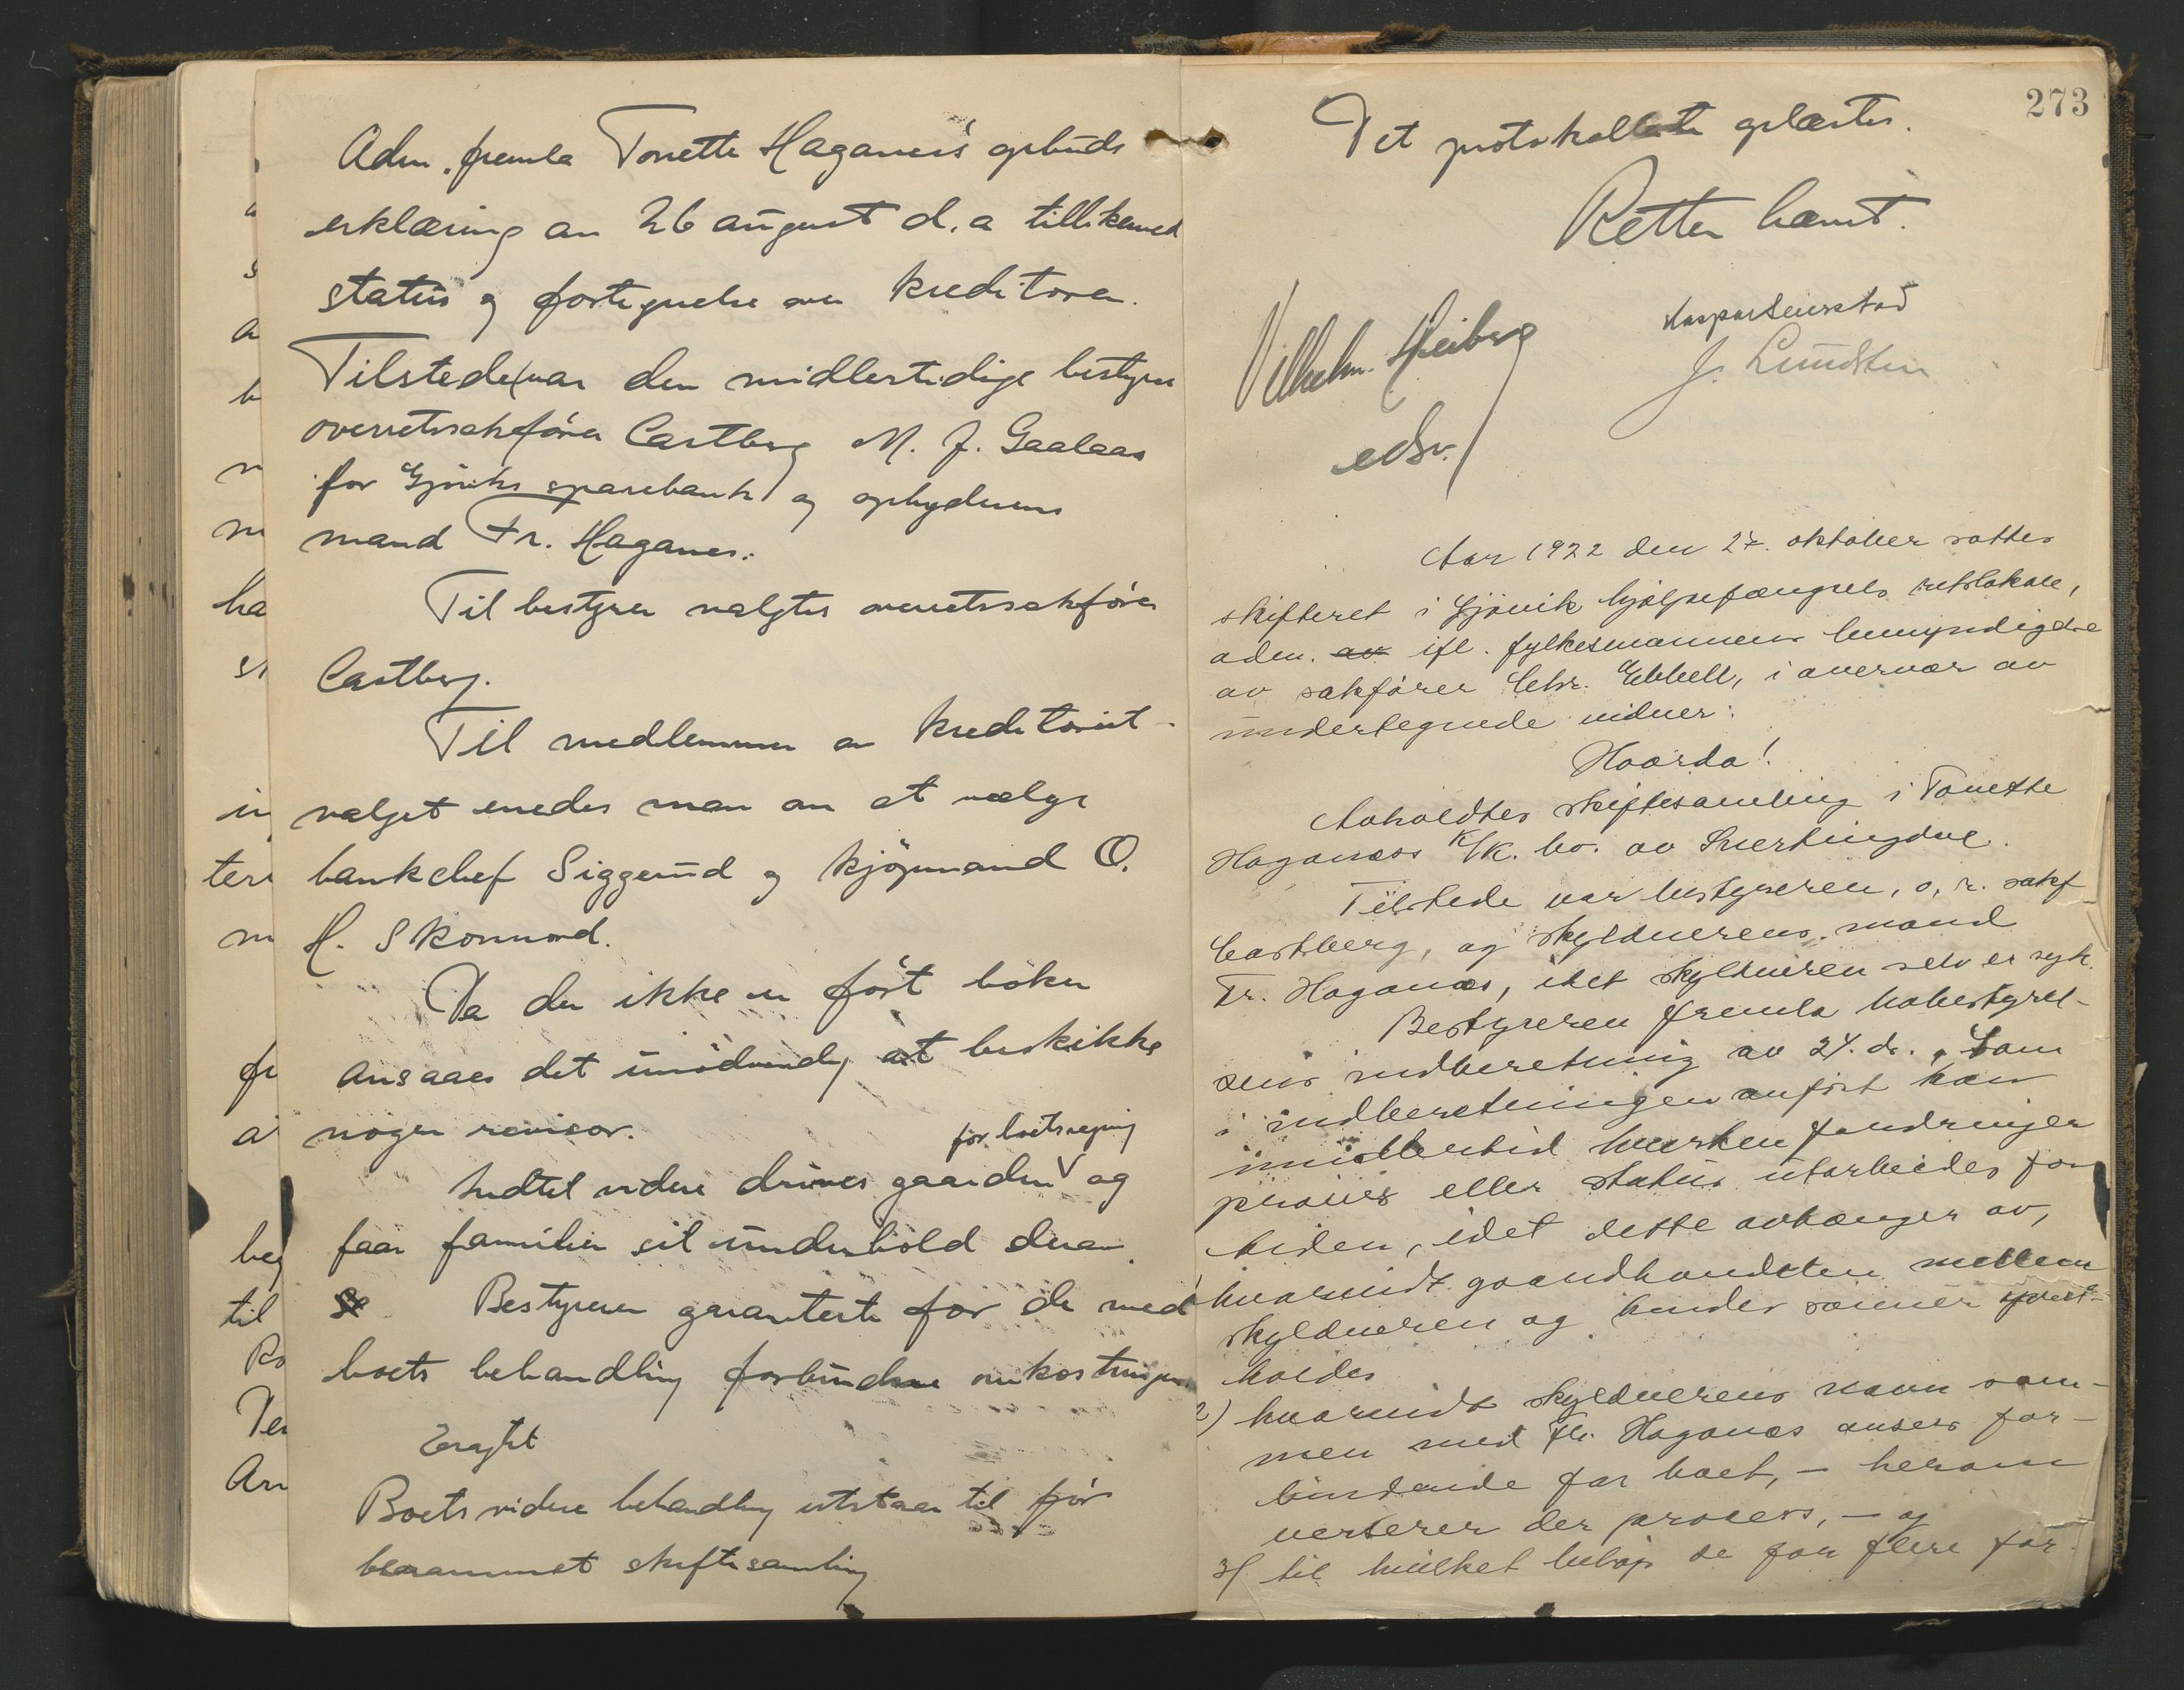 Adm. fremla Tonette Haganæs's opbuds
erklæring av 26 august d.a tillikemed
status og fortegnelse over kreditorer.
Tilstede var den midlertidige bestyrer
overretssakfører Castberg M. J. Gaalaas
for Gjøviks sparebank og opbyderens
mand Fr. Haganes.
Til bestyrer valgtes overretssakfører
Castberg.
Til medlemmer av kreditorut-
valget enedes man om at vælge
bankchef Siggerud og kjøpmand O.
H. Skonnord.
Da der ikke er ført bøker
ansaaes det unødvendig at beskikke
nogen revisor.
for boets regning
Indtil videre drives gaarden og
faar familien sit underhold derav.
Bestyreren garanterte for de med
boets behandling forbundne omkostninger
Eragtet
Boets videre behandling utstaar til før
berammet skiftesamling
273
Det protokollerte oplæstes.
Retten hævet.
Vilhelm Heiberg
edsv.
J. Lundsten
Aar 1922 den 27. oktober sattes
skifteret i Gjøvik hjælpefængsels retslokale,
adm. av ifl. fylkesmannens bemyndigelse
av sakfører Chr. Ebbell, i overvær av
undertegnede vidner:
Hvorda!
Avholdtes skiftesamling i Tonette
Haganæss K/K. bo. av Snertingdal.
Tilstede var bestyreren, o.r. sakf
Castberg, og skyldnerens mand
Fr. Haganæs, idet skyldneren selv er syk.
Bestyreren fremla bobestyrel-
sens indberetning av 24. ds. Som
i indberetningen anført kan
imidlertid hverken fordringer
prøves eller status utarbeides for
tiden, idet dette avhænger av,
hvorvidt gaardhandelen mellem
skyldneren og hendes sønner opret-
holdes
2) hvorvidt skyldnerens navn sam-
men med Fr. Haganæs ansees for-
bindende for boet, - herom
verserer der proces, - og
3) til hvilket beløp de for flere for-